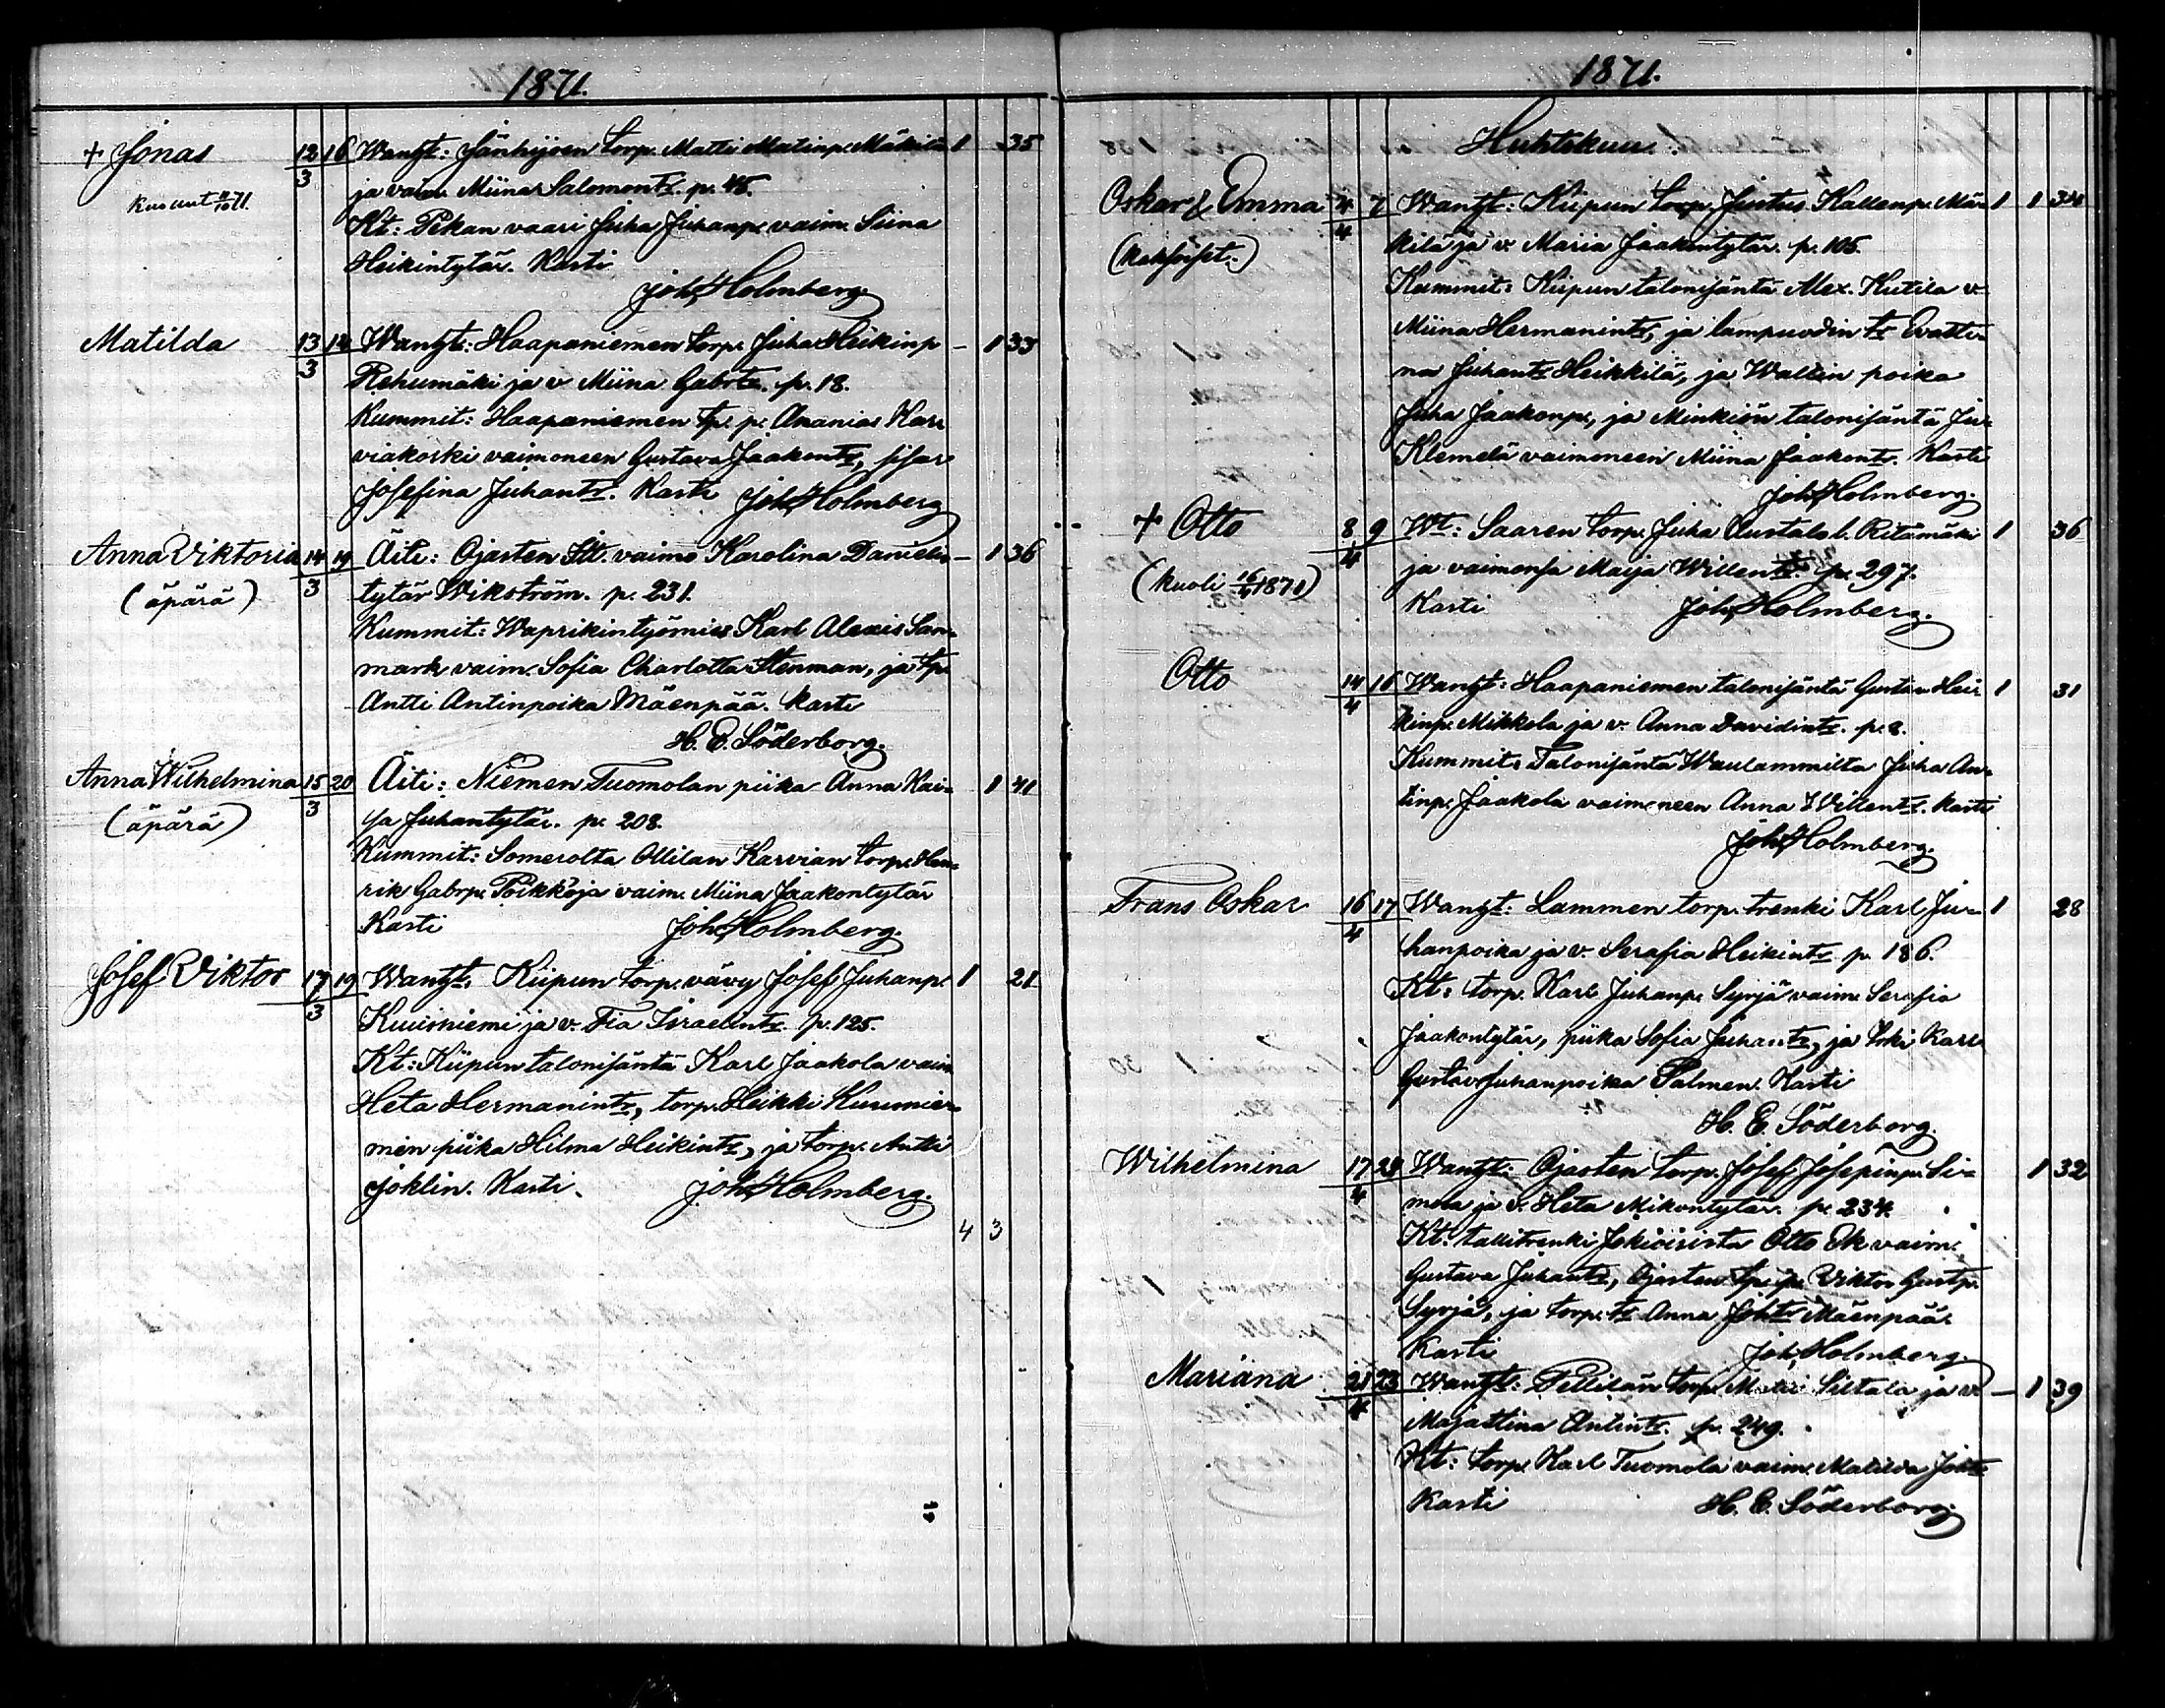 1871.
+ Jonas 12/3 16 Wanht: Jänhijoen torp. Matti Matinp. Mäkilä 1 35
kuollut 71. ja vaim. Miina Salomontr. p. 45.
Kt: Pekan vaari Juha Juhanp. vaim. Siina
Heikintytär. Kasti
Joh. Holmberg.
Matilda 13/3 14 Wanht: Haapaniemen torp. Juha Heikinp – 1 33
Rehumäki ja v Miina Gabrtr. p. 18.
Kummit: Haapaniemen tp. p. Ananias Kar-
viakoski vaimoneen Gustava Jaakontr, sisar
Josefina Juhantr. Kasti Joh. Holmberg
Anna Viktoria 14/3 19 Äiti: Ojasten Itt. vaimo Karolina Daniels- – 1 36
(äpärä) tytär Wikström. p. 231.
Kummit: Waprikintyömies Karl Alexis San-
mark vaim. Sofia Charlotta Stenman, ja tp.
Antti Antinpoika Mäenpää. Kasti
H. E. Söderborg.
Anna Wilhelmina 15/3 20 Äiti: Niemen Tuomolan piika Anna Kai- 1 41
(äpärä) sa Juhantytär. p. 208.
Kummit: Somerolta Ollilan Karvian torp. Hen-
rik Gabrp. Poikkoja vaim. Miina Jaakontytär
Kasti Joh. Holmberg.
Josef Viktor 17/3 19 Wanht. Kiipun torp. vävy Josef Juhanp. 1 21
Kuusniemi ja v. Fia Israelintr. p. 125.
Kt: Kiipun talonisäntä Karl Jaakola vaim
Heta Hermanintr, torp. Heikki Kuusnie-
men piika Hilma Heikintr, ja torp. Antti
Joklin. Kasti. Joh. Holmberg.
4 3
1871.
Huhtikuu.
Oskar & Emma 4/4 7 Wanht: Kiipun torp. Justus Kallenp. Mä- 1 1 34
(kaksoiset.) kilä ja v. Maria Jaakontytär. p. 105.
Kummit: Kiipun talonisäntä Alex. Kutila v.
Miina Hermanintr, ja lampuodin tr Evasti-
na Juhantr Heikkilä, ja Wallin poika
Juha Jaakonp., ja Minkiön talonisäntä Ju-
Klemelä vaimoneen Miina Jaakontr. Kasti
Joh. Holmberg.
+ Otto 8/4 9 Wt: Saaren torp. Juha Kustale l. Ritämäki 1 36
(kuoli 16/6 1871) ja vaimonsa Maija Willentr. p. 297.
Kasti Joh. Holmberg.
Otto 14/4 16 Wanht: Haapaniemen talonisäntä Gustav Hei- 1 31
kinp. Mikkola ja v. Anna Davidintr. p. 8.
Kummit: Talonisäntä Waulammilta Juha An-
tinp. Jaakola vaimoneen Anna Willentr. Kasti
Joh. Holmberg.
Frans Oskar 16/4 17 Wanht: Lammen torp. trenki Karl Ju- 1 28
hanpoika ja v. Serafia Heikintr p. 186.
Kt: torp. Karl Juhanp. Syrjä vaim. Serafia
Jaakontytär, piika Sofia Juhantr, ja trki Karl
Gustav Juhanpoika Salmen. Kasti
H. E. Söderborg.
Wilhelmina 17/4 23 Wanht: Ojasten torp. Josef Josepinp. Si- 1 32
mola ja v. Heta Mikontytär. p. 234.
Kt: tallitrenki Jokioisista Otto Ek vaim.
Gustava Juhantr, Ojasten tp. p. Viktor Gustp.
Syrjä, ja torp. tr Anna Johtr Mäenpää.
Kasti Joh. Holmberg.
Mariana 21/4 23 Wanht: Pellilän torp. Matti Siltala ja v. – 1 39
Majastina Antintr. p. 249.
Kt: torp. Karl Tuomola vaim. Matilda Johtr
Kasti H. E. Söderborg.